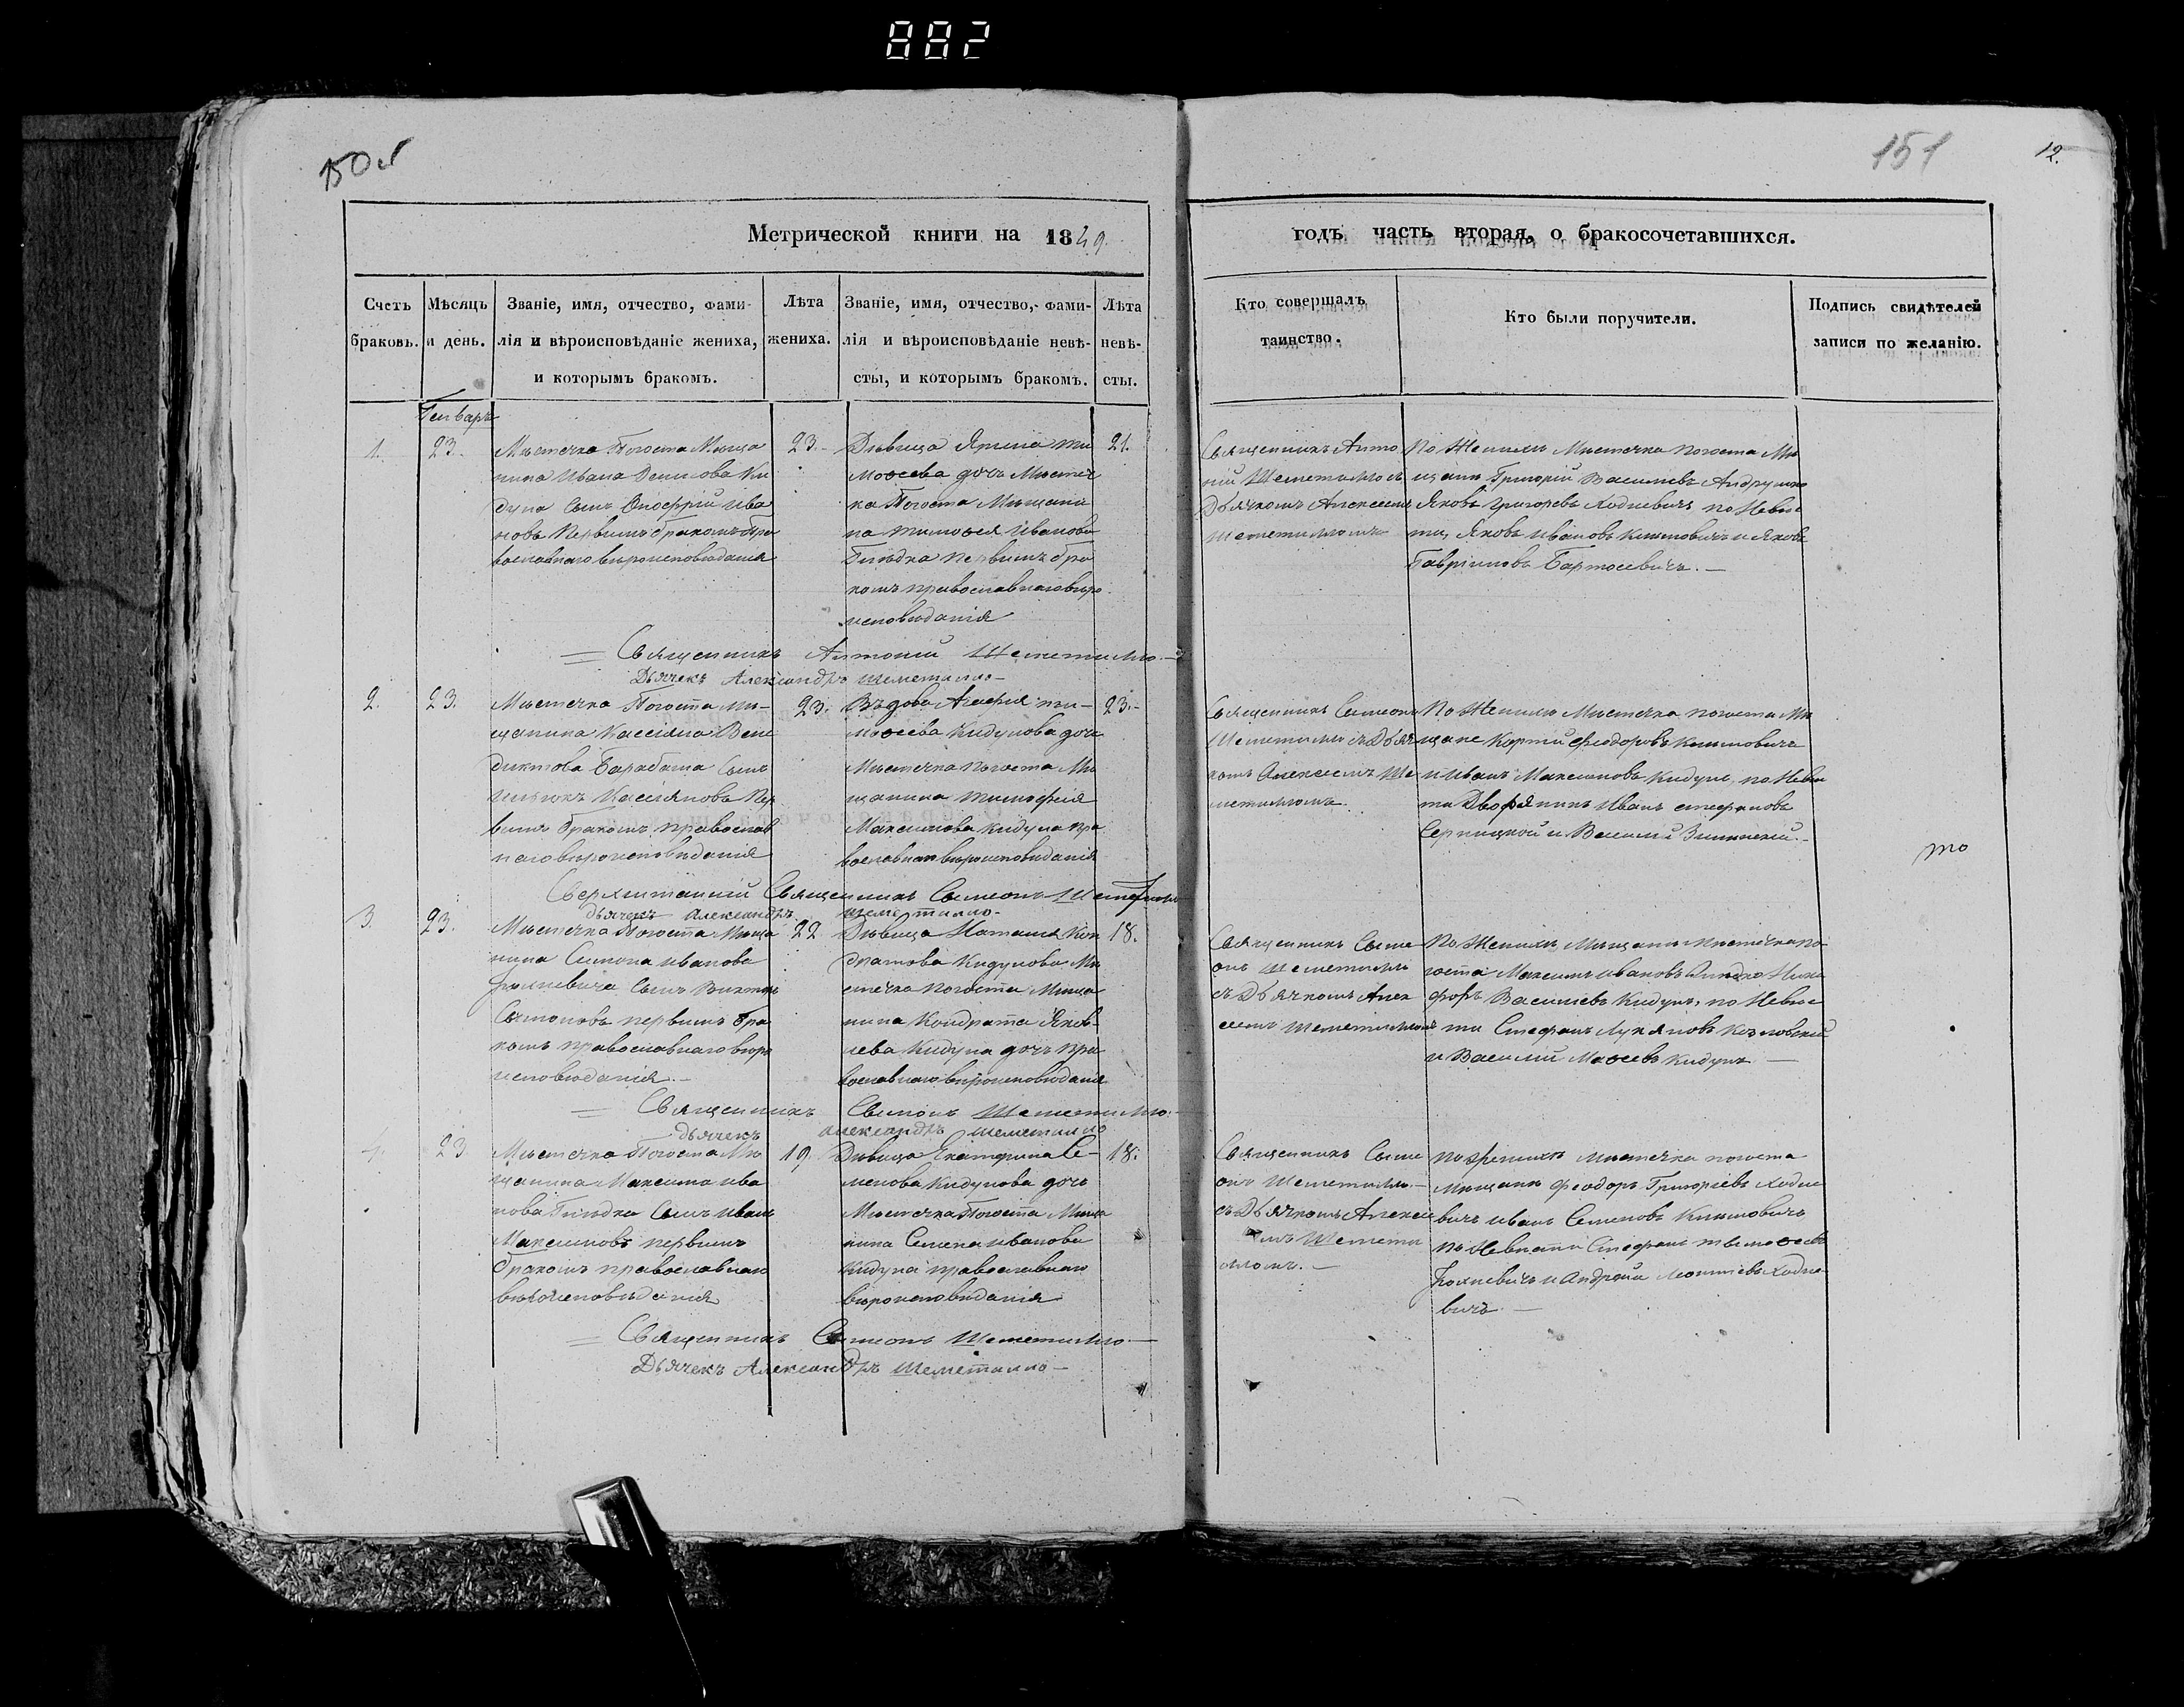 882
150
151
12.
Метрической книги на 1849.
годъ, часть вторая, о бракосочетавшихся.
Счетъ браковъ.
Мѣсяцъ и день.
Званіе, имя, отчество, фами-
лія и вѣроисповѣданіе жениха,
и которымъ бракомъ.
Лѣта
жениха.
Званіе, имя, отчество, фами-
лія и вѣроисповѣданіе невѣ-
сты, и которымъ бракомъ.
Лѣта
невѣ-
сты.
Кто совершалъ
таинство.
Кто были поручители.
Подпись свидѣтелей
записи по желанію.
Генварь
1.
23.
Мѣстечка Погоста Мѣща
нина Ивана Денисова Ки
дуна сынъ Онофрій Ива
новъ первымъ бракомъ пра
вославнаго вѣроисповѣданія
23.
Дѣвица Ти
моѳеева дочь Мѣстеч
ка Погоста Мѣщани
на Тимоѳея Иванова
Гиндка первымъ бра
комъ православнаго вѣро
исповѣданія
21.
Священникъ Анто
ній Шеметилло съ
Дьячкомъ Алексеемъ
Шеметилломъ
По Женихѣ Мѣстечка Погоста Мѣ
щане Григорій Васильевъ
Яковъ Григорьевъ Ходневичъ по Невѣс
ти, Яковъ Ивановъ Климовичъ и Яковъ
Гавріиловъ Бартосевичъ.
Священникъ Антоній Шеметилло.
Дьячекъ Александръ Шеметилло
2.
23.
Мѣстечка Погоста Мѣ-
щанина Кассіяна Вене
диктова Барабаша сынъ
Кассіяновъ пер
вымъ бракомъ православ
наго вѣроисповѣданія
23.
Вдова Агафія Ти-
моѳеева Кидунова дочь
Мѣстечка Погоста Мѣ
щанина Тимофея
Максимова Кидуна пра
вославнаго вѣроисповѣданія
23.
Священникъ Симеонъ
Шеметилло съ Дьяч
комъ Алексеемъ Ше
метилломъ.
По Женихѣ Мѣстечка Погоста Мѣ
щане Феодоровъ Климовичъ
и Иванъ Максимовъ Кидунъ, по Невѣс
ти Дворянинъ Иванъ Стефановъ
и Василій
то
Священникъ Симеонъ Шеметилло
Дьячекъ Александръ Шеметилло.
3.
23.
Мѣстечка Погоста Мѣща
нина Симона Иванова
сынъ
Симоновъ первымъ бра
комъ православнаго вѣро
исповѣданія.
22
Дѣвица Наталія Кон
дратова Кидунова Мѣ
стечка Погоста Мѣща
нина Кондрата Яков-
лева Кидуна дочь пра
вославнаго вѣроисповѣданія
18.
Священникъ Симе
онъ Шеметилло
съ Дьячкомъ Алек
сеемъ Шеметилломъ
По Женихѣ Мѣщане Мѣстечка По
госта Максимъ Ивановъ Гиндко Ники
форъ Васильевъ Кидунъ, по Невѣс
ти Стефанъ Лукяновъ Козловскій
и Василій Моѳеевъ Кидунъ
Священникъ Симеонъ Шеметилло.
Дьячекъ Александръ Шеметилло
4.
23
Мѣстечка Погоста Мѣ
щанина Максима Ива
нова Гиндка сынъ Иванъ
Максимовъ первымъ
бракомъ православнаго
вѣроисповѣданія
19.
Дѣвица Екатерина Се-
менова Кидунова дочь
Мѣстечка Погоста Мѣща
нина Семена Иванова
Кидуна православнаго
вѣроисповѣданія
18.
Священникъ Симе
онъ Шеметилло
съ Дьячкомъ Алексе
емъ Шемети
лломъ.
По Женихѣ Мѣстечка Погоста
Мѣщане Феодоръ Григорьевъ Ходне
вичъ Иванъ Семеновъ Климовичъ
по Невѣсти Стефанъ Тимоѳеевъ
и Андрей Леонтіевъ Ходне
вичъ.
Священникъ Симеонъ Шеметилло
Дьячекъ Александръ Шеметилло